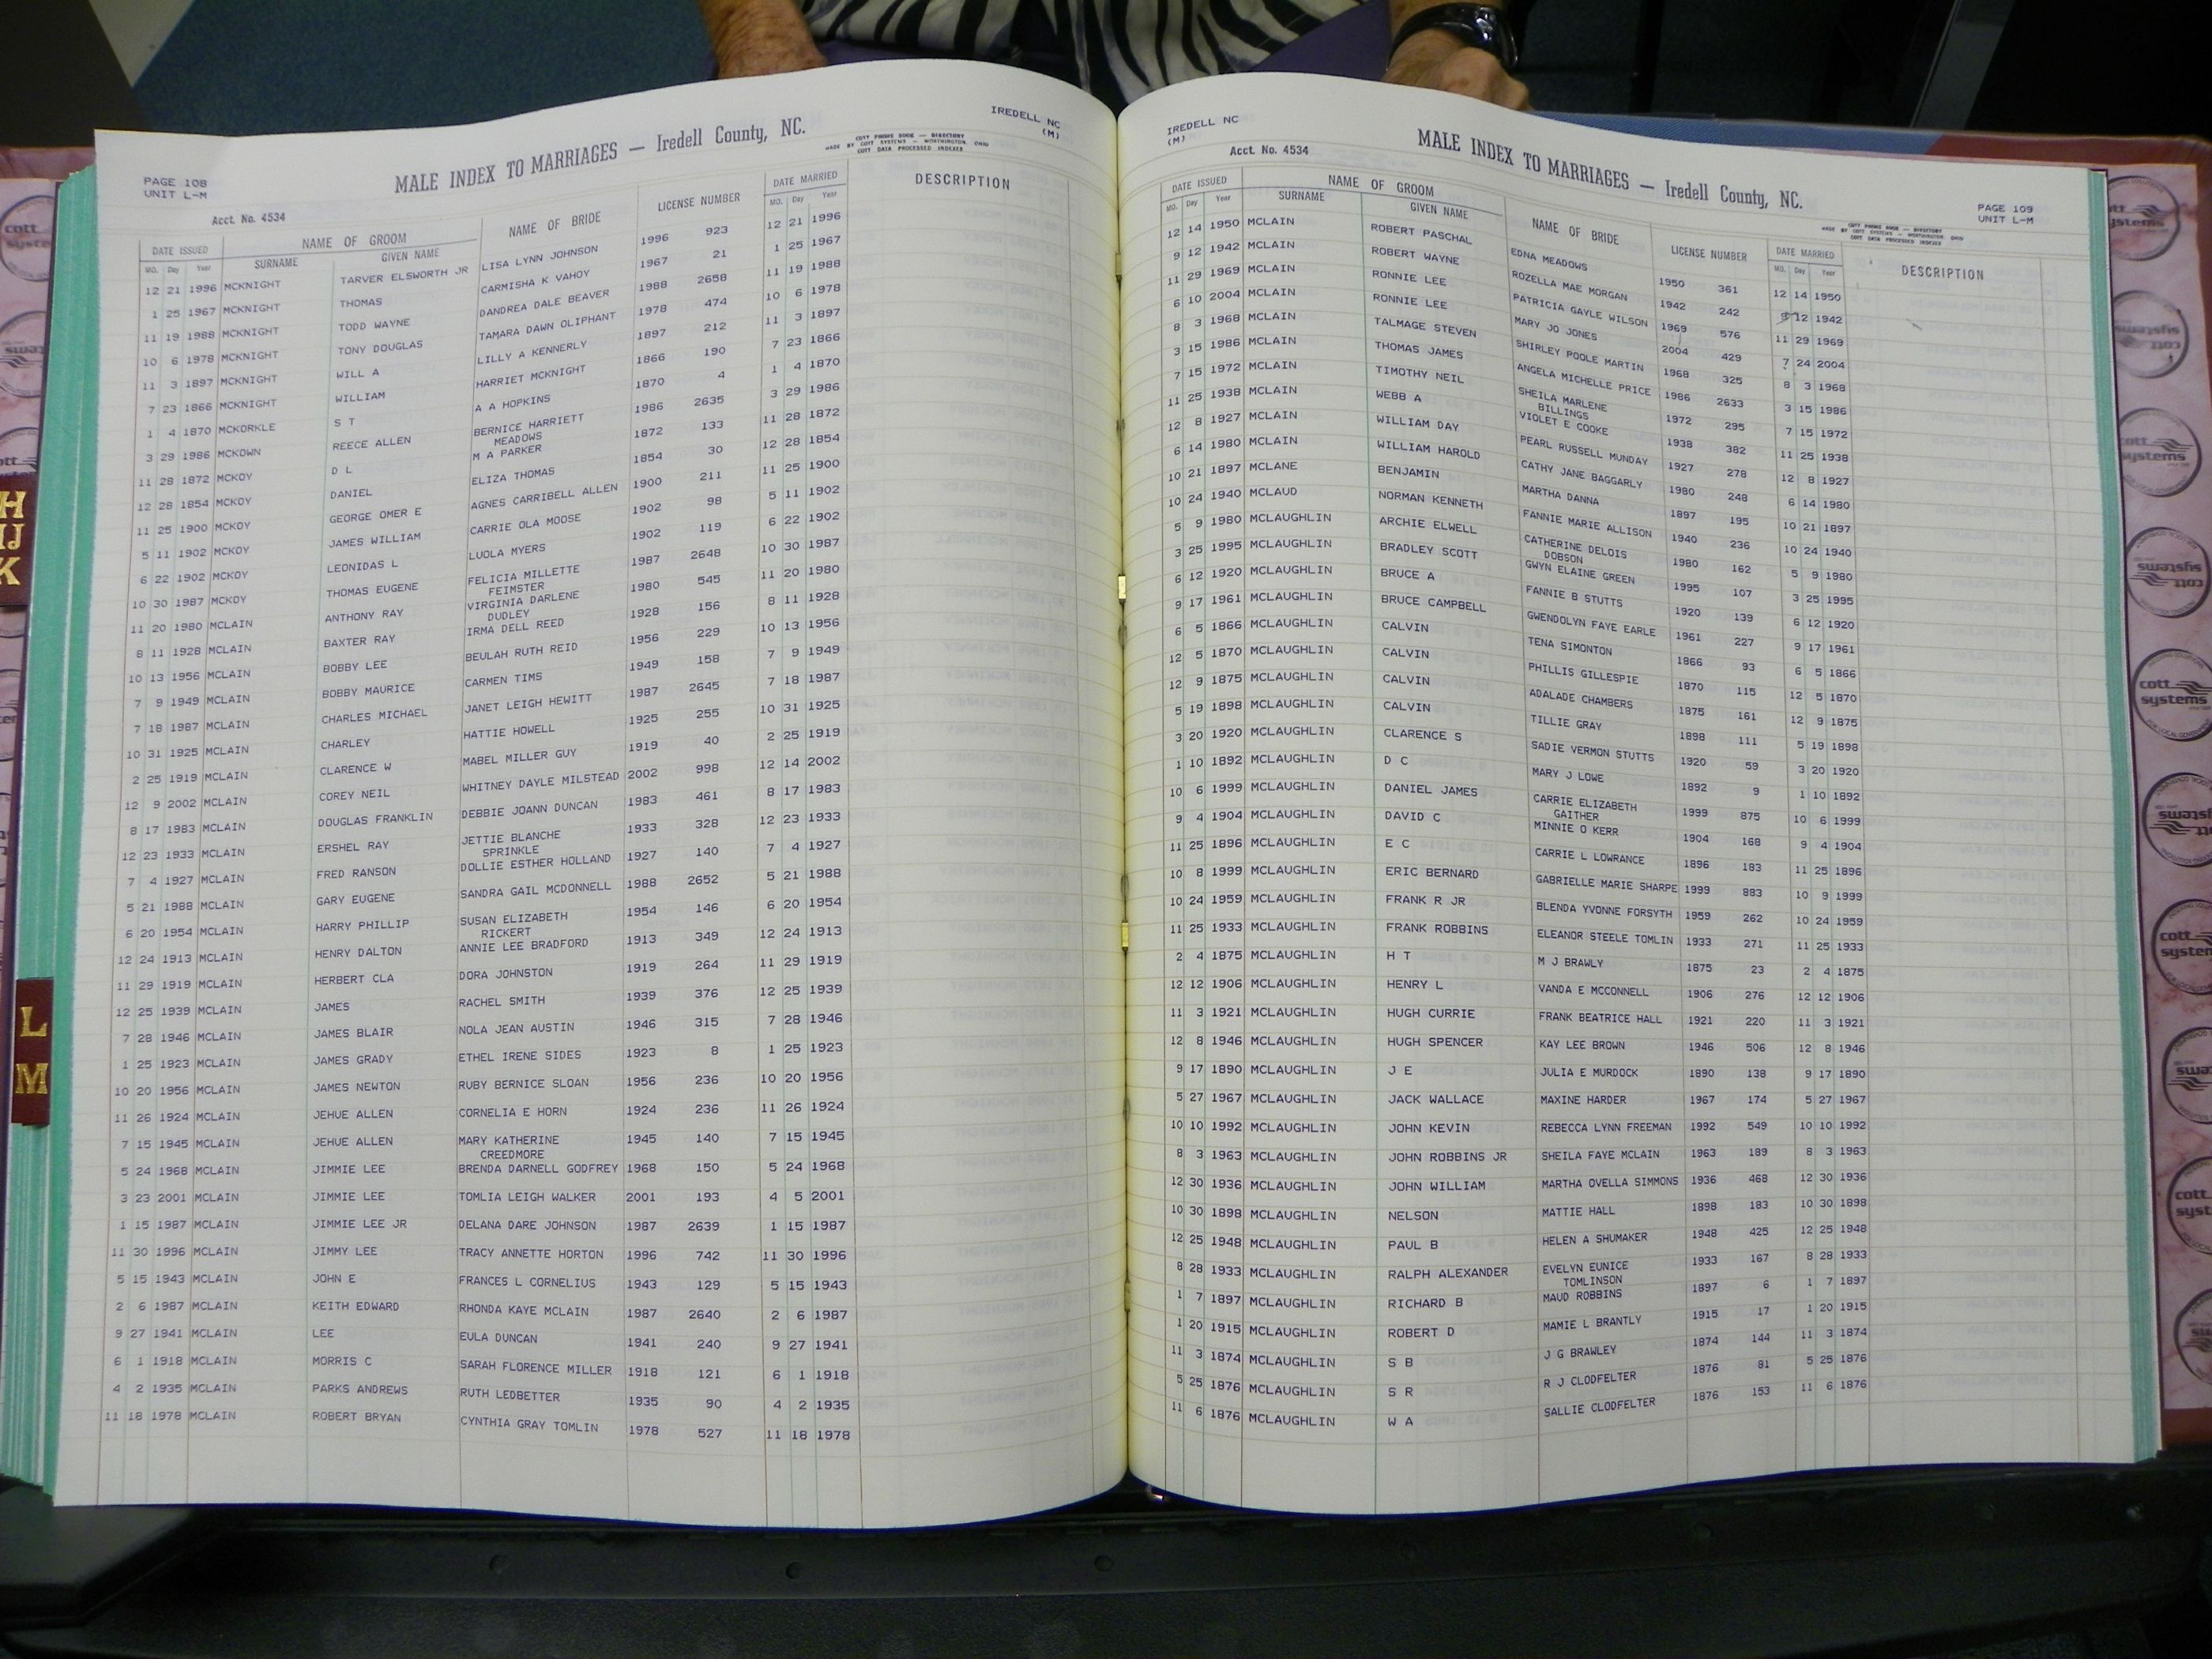 IREDELL NC
(M)
MALE INDEX TO MARRIAGES — Iredell County, NC.
COTT PHONE BOOK — DIRECTORY
MADE BY COTT SYSTEMS — WORTHINGTON, OHIO
COTT DATA PROCESSED INDEXES
PAGE 108
UNIT L-M
Acct. No. 4534
DATE ISSUED NAME OF GROOM NAME OF BRIDE LICENSE NUMBER DATE MARRIED DESCRIPTION
MO. Day Year SURNAME GIVEN NAME MO. Day Year
12 21 1996 MCKNIGHT TARVER ELSWORTH JR LISA LYNN JOHNSON 1996 923 12 21 1996
1 25 1967 MCKNIGHT THOMAS CARMISHA K VAHOY 1967 21 1 25 1967
11 19 1988 MCKNIGHT TODD WAYNE DANDREA DALE BEAVER 1988 2658 11 19 1988
10 6 1978 MCKNIGHT TONY DOUGLAS TAMARA DAWN OLIPHANT 1978 474 10 6 1978
11 3 1897 MCKNIGHT WILL A LILLY A KENNERLY 1897 212 11 3 1897
7 23 1866 MCKNIGHT WILLIAM HARRIET MCKNIGHT 1866 190 7 23 1866
1 4 1870 MCKORKLE S T A A HOPKINS 1870 4 1 4 1870
3 29 1986 MCKOWN REECE ALLEN BERNICE HARRIETT 1986 2635 3 29 1986
MEADOWS
11 28 1872 MCKOY D L M A PARKER 1872 133 11 28 1872
12 28 1854 MCKOY DANIEL ELIZA THOMAS 1854 30 12 28 1854
11 25 1900 MCKOY GEORGE OMER E AGNES CARRIBELL ALLEN 1900 211 11 25 1900
5 11 1902 MCKOY JAMES WILLIAM CARRIE OLA MOOSE 1902 98 5 11 1902
6 22 1902 MCKOY LEONIDAS L LUOLA MYERS 1902 119 6 22 1902
10 30 1987 MCKOY THOMAS EUGENE FELICIA MILLETTE 1987 2648 10 30 1987
FEIMSTER
11 20 1980 MCLAIN ANTHONY RAY VIRGINIA DARLENE 1980 545 11 20 1980
DUDLEY
8 11 1928 MCLAIN BAXTER RAY IRMA DELL REED 1928 156 8 11 1928
10 13 1956 MCLAIN BOBBY LEE BEULAH RUTH REID 1956 229 10 13 1956
7 9 1949 MCLAIN BOBBY MAURICE CARMEN TIMS 1949 158 7 9 1949
7 18 1987 MCLAIN CHARLES MICHAEL JANET LEIGH HEWITT 1987 2645 7 18 1987
10 31 1925 MCLAIN CHARLEY HATTIE HOWELL 1925 255 10 31 1925
2 25 1919 MCLAIN CLARENCE W MABEL MILLER GUY 1919 40 2 25 1919
12 9 2002 MCLAIN COREY NEIL WHITNEY DAYLE MILSTEAD 2002 998 12 14 2002
8 17 1983 MCLAIN DOUGLAS FRANKLIN DEBBIE JOANN DUNCAN 1983 461 8 17 1983
12 23 1933 MCLAIN ERSHEL RAY JETTIE BLANCHE 1933 328 12 23 1933
SPRINKLE
7 4 1927 MCLAIN FRED RANSON DOLLIE ESTHER HOLLAND 1927 140 7 4 1927
5 21 1988 MCLAIN GARY EUGENE SANDRA GAIL MCDONNELL 1988 2652 5 21 1988
6 20 1954 MCLAIN HARRY PHILLIP SUSAN ELIZABETH 1954 146 6 20 1954
RICKERT
12 24 1913 MCLAIN HENRY DALTON ANNIE LEE BRADFORD 1913 349 12 24 1913
11 29 1919 MCLAIN HERBERT CLA DORA JOHNSTON 1919 264 11 29 1919
12 25 1939 MCLAIN JAMES RACHEL SMITH 1939 376 12 25 1939
7 28 1946 MCLAIN JAMES BLAIR NOLA JEAN AUSTIN 1946 315 7 28 1946
1 25 1923 MCLAIN JAMES GRADY ETHEL IRENE SIDES 1923 8 1 25 1923
10 20 1956 MCLAIN JAMES NEWTON RUBY BERNICE SLOAN 1956 236 10 20 1956
11 26 1924 MCLAIN JEHUE ALLEN CORNELIA E HORN 1924 236 11 26 1924
7 15 1945 MCLAIN JEHUE ALLEN MARY KATHERINE 1945 140 7 15 1945
CREEDMORE
5 24 1968 MCLAIN JIMMIE LEE BRENDA DARNELL GODFREY 1968 150 5 24 1968
3 23 2001 MCLAIN JIMMIE LEE TOMLIA LEIGH WALKER 2001 193 4 5 2001
1 15 1987 MCLAIN JIMMIE LEE JR DELANA DARE JOHNSON 1987 2639 1 15 1987
11 30 1996 MCLAIN JIMMY LEE TRACY ANNETTE HORTON 1996 742 11 30 1996
5 15 1943 MCLAIN JOHN E FRANCES L CORNELIUS 1943 129 5 15 1943
2 6 1987 MCLAIN KEITH EDWARD RHONDA KAYE MCLAIN 1987 2640 2 6 1987
9 27 1941 MCLAIN LEE EULA DUNCAN 1941 240 9 27 1941
6 1 1918 MCLAIN MORRIS C SARAH FLORENCE MILLER 1918 121 6 1 1918
4 2 1935 MCLAIN PARKS ANDREWS RUTH LEDBETTER 1935 90 4 2 1935
11 18 1978 MCLAIN ROBERT BRYAN CYNTHIA GRAY TOMLIN 1978 527 11 18 1978
IREDELL NC
(M)
Acct. No. 4534
MALE INDEX TO MARRIAGES — Iredell County, NC.
MADE BY COTT SYSTEMS — WORTHINGTON, OHIO
COTT DATA PROCESSED INDEXES
PAGE 109
UNIT L-M
DATE ISSUED NAME OF GROOM NAME OF BRIDE LICENSE NUMBER DATE MARRIED DESCRIPTION
MO. Day Year SURNAME GIVEN NAME MO. Day Year
12 14 1950 MCLAIN ROBERT PASCHAL EDNA MEADOWS 1950 361 12 14 1950
9 12 1942 MCLAIN ROBERT WAYNE ROZELLA MAE MORGAN 1942 242 9 12 1942
11 29 1969 MCLAIN RONNIE LEE PATRICIA GAYLE WILSON 1969 576 11 29 1969
6 10 2004 MCLAIN RONNIE LEE MARY JO JONES 2004 429 7 24 2004
8 3 1968 MCLAIN TALMAGE STEVEN SHIRLEY POOLE MARTIN 1968 325 8 3 1968
3 15 1986 MCLAIN THOMAS JAMES ANGELA MICHELLE PRICE 1986 2633 3 15 1986
7 15 1972 MCLAIN TIMOTHY NEIL SHEILA MARLENE 1972 295 7 15 1972
BILLINGS
11 25 1938 MCLAIN WEBB A VIOLET E COOKE 1938 382 11 25 1938
12 8 1927 MCLAIN WILLIAM DAY PEARL RUSSELL MUNDAY 1927 278 12 8 1927
6 14 1980 MCLAIN WILLIAM HAROLD CATHY JANE BAGGARLY 1980 248 6 14 1980
10 21 1897 MCLANE BENJAMIN MARTHA DANNA 1897 195 10 21 1897
10 24 1940 MCLAUD NORMAN KENNETH FANNIE MARIE ALLISON 1940 236 10 24 1940
5 9 1980 MCLAUGHLIN ARCHIE ELWELL CATHERINE DELOIS 1980 162 5 9 1980
DOBSON
3 25 1995 MCLAUGHLIN BRADLEY SCOTT GWYN ELAINE GREEN 1995 107 3 25 1995
6 12 1920 MCLAUGHLIN BRUCE A FANNIE B STUTTS 1920 139 6 12 1920
9 17 1961 MCLAUGHLIN BRUCE CAMPBELL GWENDOLYN FAYE EARLE 1961 227 9 17 1961
6 5 1866 MCLAUGHLIN CALVIN TENA SIMONTON 1866 93 6 5 1866
12 5 1870 MCLAUGHLIN CALVIN PHILLIS GILLESPIE 1870 115 12 5 1870
12 9 1875 MCLAUGHLIN CALVIN ADALADE CHAMBERS 1875 161 12 9 1875
5 19 1898 MCLAUGHLIN CALVIN TILLIE GRAY 1898 111 5 19 1898
3 20 1920 MCLAUGHLIN CLARENCE S SADIE VERMON STUTTS 1920 59 3 20 1920
1 10 1892 MCLAUGHLIN D C MARY J LOWE 1892 9 1 10 1892
10 6 1999 MCLAUGHLIN DANIEL JAMES CARRIE ELIZABETH 1999 875 10 6 1999
GAITHER
9 4 1904 MCLAUGHLIN DAVID C MINNIE O KERR 1904 168 9 4 1904
11 25 1896 MCLAUGHLIN E C CARRIE L LOWRANCE 1896 183 11 25 1896
10 8 1999 MCLAUGHLIN ERIC BERNARD GABRIELLE MARIE SHARPE 1999 883 10 9 1999
10 24 1959 MCLAUGHLIN FRANK R JR BLENDA YVONNE FORSYTH 1959 262 10 24 1959
11 25 1933 MCLAUGHLIN FRANK ROBBINS ELEANOR STEELE TOMLIN 1933 271 11 25 1933
2 4 1875 MCLAUGHLIN H T M J BRAWLY 1875 23 2 4 1875
12 12 1906 MCLAUGHLIN HENRY L VANDA E MCCONNELL 1906 276 12 12 1906
11 3 1921 MCLAUGHLIN HUGH CURRIE FRANK BEATRICE HALL 1921 220 11 3 1921
12 8 1946 MCLAUGHLIN HUGH SPENCER KAY LEE BROWN 1946 506 12 8 1946
9 17 1890 MCLAUGHLIN J E JULIA E MURDOCK 1890 138 9 17 1890
5 27 1967 MCLAUGHLIN JACK WALLACE MAXINE HARDER 1967 174 5 27 1967
10 10 1992 MCLAUGHLIN JOHN KEVIN REBECCA LYNN FREEMAN 1992 549 10 10 1992
8 3 1963 MCLAUGHLIN JOHN ROBBINS JR SHEILA FAYE MCLAIN 1963 189 8 3 1963
12 30 1936 MCLAUGHLIN JOHN WILLIAM MARTHA OVELLA SIMMONS 1936 468 12 30 1936
10 30 1898 MCLAUGHLIN NELSON MATTIE HALL 1898 183 10 30 1898
12 25 1948 MCLAUGHLIN PAUL B HELEN A SHUMAKER 1948 425 12 25 1948
8 28 1933 MCLAUGHLIN RALPH ALEXANDER EVELYN EUNICE 1933 167 8 28 1933
TOMLINSON
1 7 1897 MCLAUGHLIN RICHARD B MAUD ROBBINS 1897 6 1 7 1897
1 20 1915 MCLAUGHLIN ROBERT D MAMIE L BRANTLY 1915 17 1 20 1915
11 3 1874 MCLAUGHLIN S B J G BRAWLEY 1874 144 11 3 1874
5 25 1876 MCLAUGHLIN S R R J CLODFELTER 1876 81 5 25 1876
11 6 1876 MCLAUGHLIN W A SALLIE CLODFELTER 1876 153 11 6 1876
H
IJ
K
L
M
cott
systems